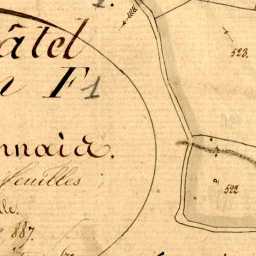 âtel
n F1
nnaia.
feuilles
le.
887.
1.
523.
522